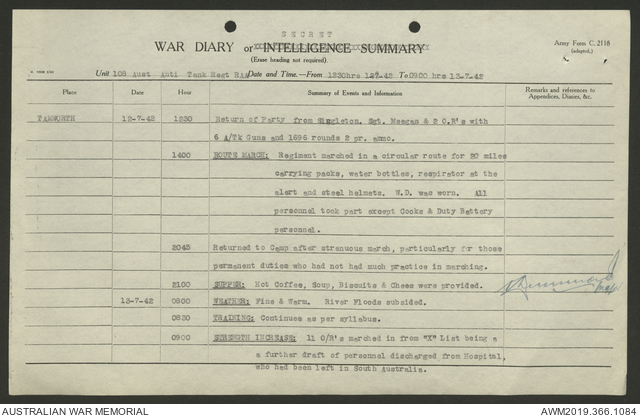 SECRET
WAR DIARY or INTELLIGENCE SUMMARY
Army Form C.2118
(adapted.)
(Erase heading not required).
Unit 108 Aust Anti Tank Regt RAA Date and Time.—From 1230hrs 12-7-42 To 0900 hrs 13-7-42
Place Date Hour Summary of Events and Information Remarks and references to
Appendices, Diaries, &c.
TAMWORTH 12-7-42 1230 Return of Party from Singleton. Sgt. Meagan & 2 O.R's with
6 A/Tk Guns and 1696 rounds 2 pr. ammo.
1400 ROUTE MARCH: Regiment marched in a circular route for 20 miles
carrying packs, water bottles, respirator at the
alert and steel helmets. W.D. was worn. All
personnel took part except Cooks & Duty Battery
personnel.
2045 Returned to Camp after strenuous march, particularly for those
permanent duties who had not had much practice in marching.
2100 SUPPER: Hot Coffee, Soup, Biscuits & Cheese were provided.
13-7-42 0800 WEATHER: Fine & Warm. River Floods subsided.
0830 TRAINING: Continues as per syllabus.
0900 STRENGTH INCREASE: 11 O/R's marched in from "X" List being a
a further draft of personnel discharged from Hospital,
who had been left in South Australia.
AUSTRALIAN WAR MEMORIAL
AWM2019.366.1084